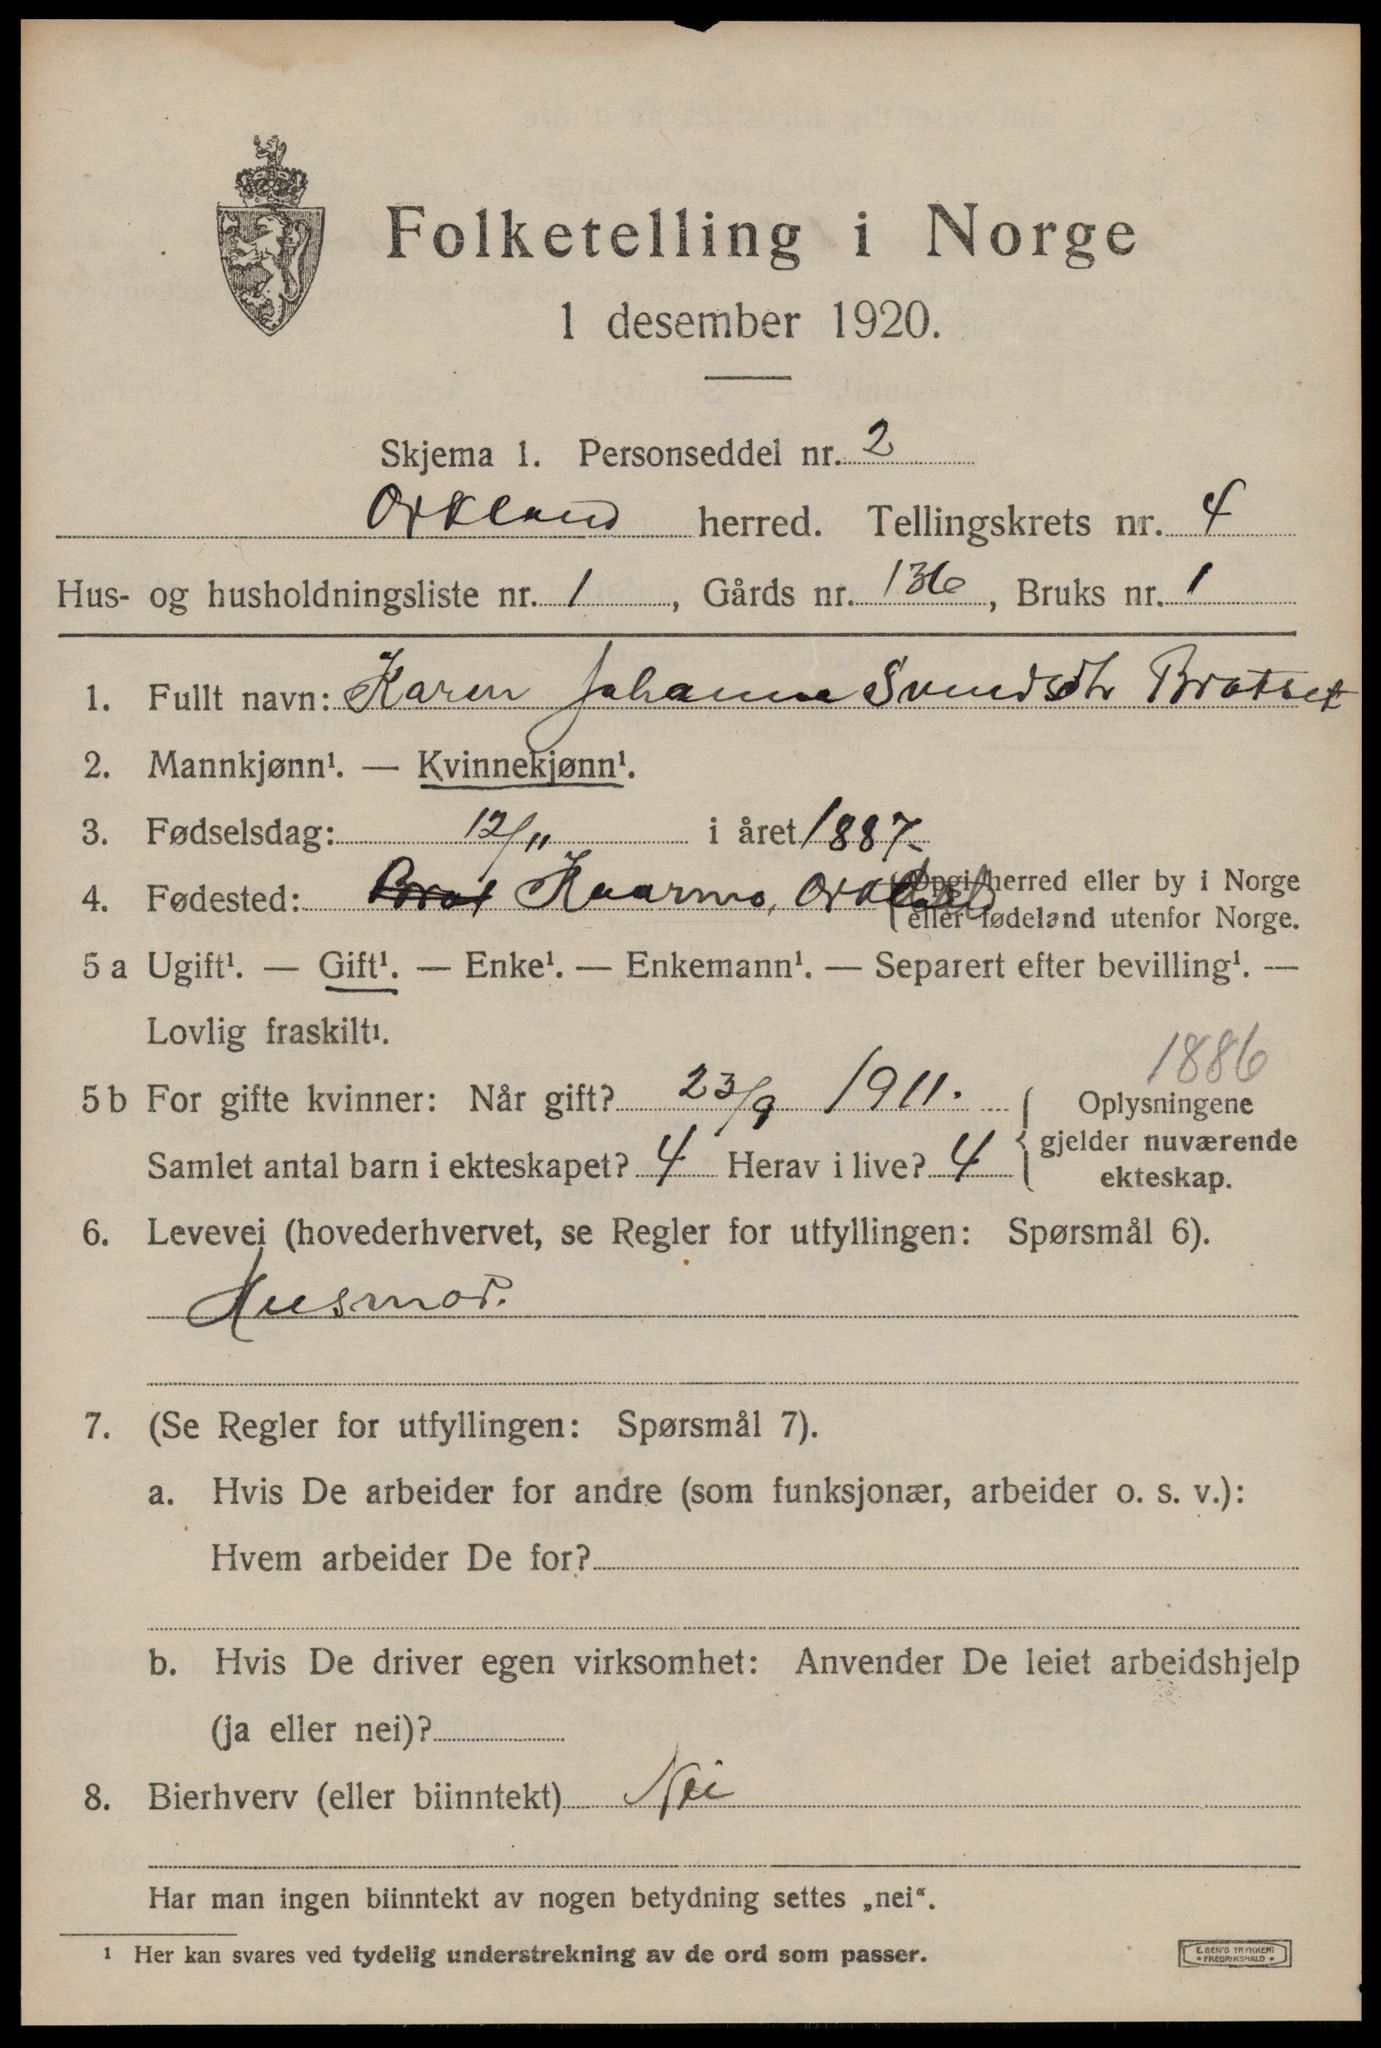 Folketelling i Norge
1 desember 1920.
Skjema 1. Personseddel nr. 2
Orkland herred. Tellingskrets nr. 4
Hus- og husholdningsliste nr. 1, Gårds nr. 136, Bruks nr. 1
1. Fullt navn: Karen Johanna Svendsdtr Bratset
2. Mannkjønn¹. — Kvinnekjønn¹.
3. Fødselsdag: 12/11 i året 1887.
4. Fødested: Brat Kaarmo, {Opgi herred eller by i Norge
eller fødeland utenfor Norge.
5 a Ugift¹. — Gift¹. — Enke¹. — Enkemann¹. — Separert efter bevilling¹. —
Lovlig fraskilt¹.
1886
5 b For gifte kvinner: Når gift? 23/9 1911. { Oplysningene
gjelder nuværende
Samlet antal barn i ekteskapet? 4 Herav i live? 4
ekteskap.
6. Levevei (hovederhvervet, se Regler for utfyllingen: Spørsmål 6).
Husmor.
7. (Se Regler for utfyllingen: Spørsmål 7).
a. Hvis De arbeider for andre (som funksjonær, arbeider o. s. v.):
Hvem arbeider De for?
b. Hvis De driver egen virksomhet: Anvender De leiet arbeidshjelp
(ja eller nei)?
8. Bierhverv (eller biinntekt) Nei
Har man ingen biinntekt av nogen betydning settes „nei“.
¹ Her kan svares ved tydelig understrekning av de ord som passer.
E. SEM'S TRYKKERI
• FREDRIKSHALD •